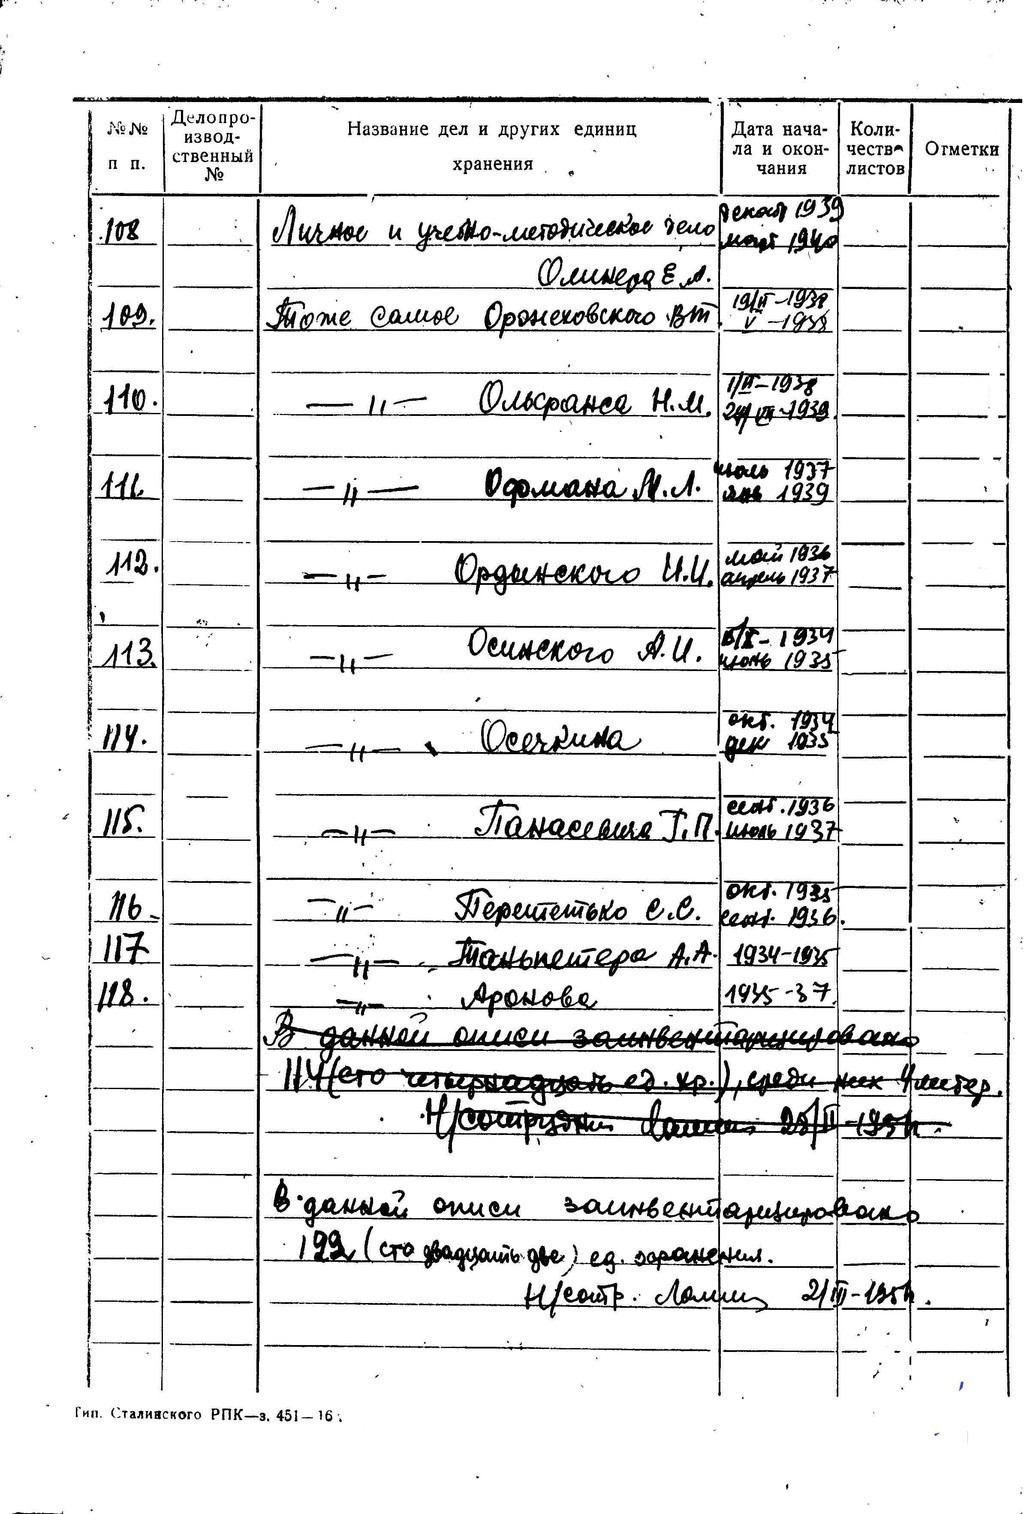 №№ п п.
Делопроизводственный №
Название дел и других единиц хранения
Дата начала и окончания
Количество листов
Отметки
108 Личное и учебно-методическое дело декабр 1939
март 1940
Олинера Е.А.
109. Тоже самое Оронековского В.Т. 19/II-1938
V-1938
110. — " — Ольфранса Н.М. 1/II-1938
1939
111. — " — Офмана М.Л. июль 1937
янв 1939
112. — " — Ордынского И.И. май 1936
апрель 1937
113. — " — Осинского А.И. 1934
июнь 1935
114. — " — Осечкина окт. 1934
дек 1935
115. — " — Панасевича Г.П. сент. 1936
июль 1937
116 — " — Перететько С.С. окт. 1935
сент. 1936.
117 — " — Таньпетера А.А. 1934-1935
118. — " — Аронова 1935-37.
В данной описи заинвентаризировано
114 (сто четырнадцать ед. хр.), среди них 4 литер.
Н/сотрудник 25/II-195
В данной описи заинвентаризировано
122 (сто двадцать две) ед. хранения.
Н/сотр. 2/III-195
Тип. Сталинского РПК—з. 451—16